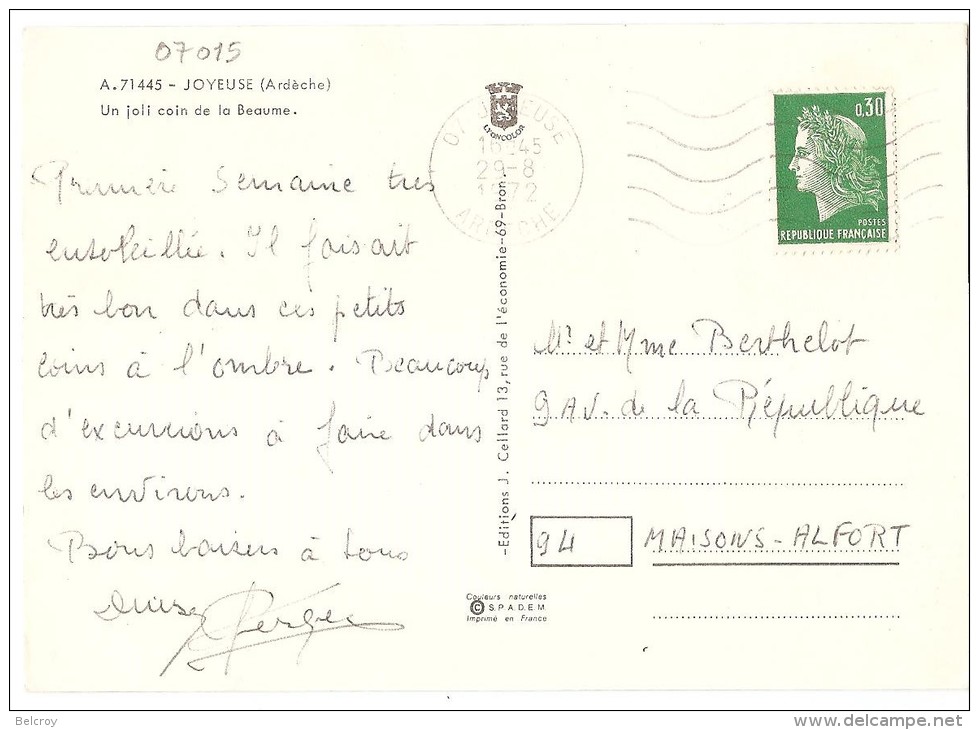 07015
A.71445 - JOYEUSE (Ardèche)
Un joli coin de la Beaume.
Première Semaine très
ensoleillée. Il faisait
très bon dans ces petits
coins à l'ombre. Beaucoup
d'excursions à faire dans
les environs.
Bons baisers à tous
LYONCOLOR
07 JOYEUSE
16H45
29-8
1972
ARDECHE
-Editions J. Cellard 13, rue de l'économie-69-Bron.
Couleurs naturelles
© S.P.A.D.E.M.
Imprimé en France
0,30
POSTES
REPUBLIQUE FRANÇAISE
Mr et Mme Berthelot
9 AV. de la République
94 MAISONS-ALFORT
Belcroy
www.delcampe.net